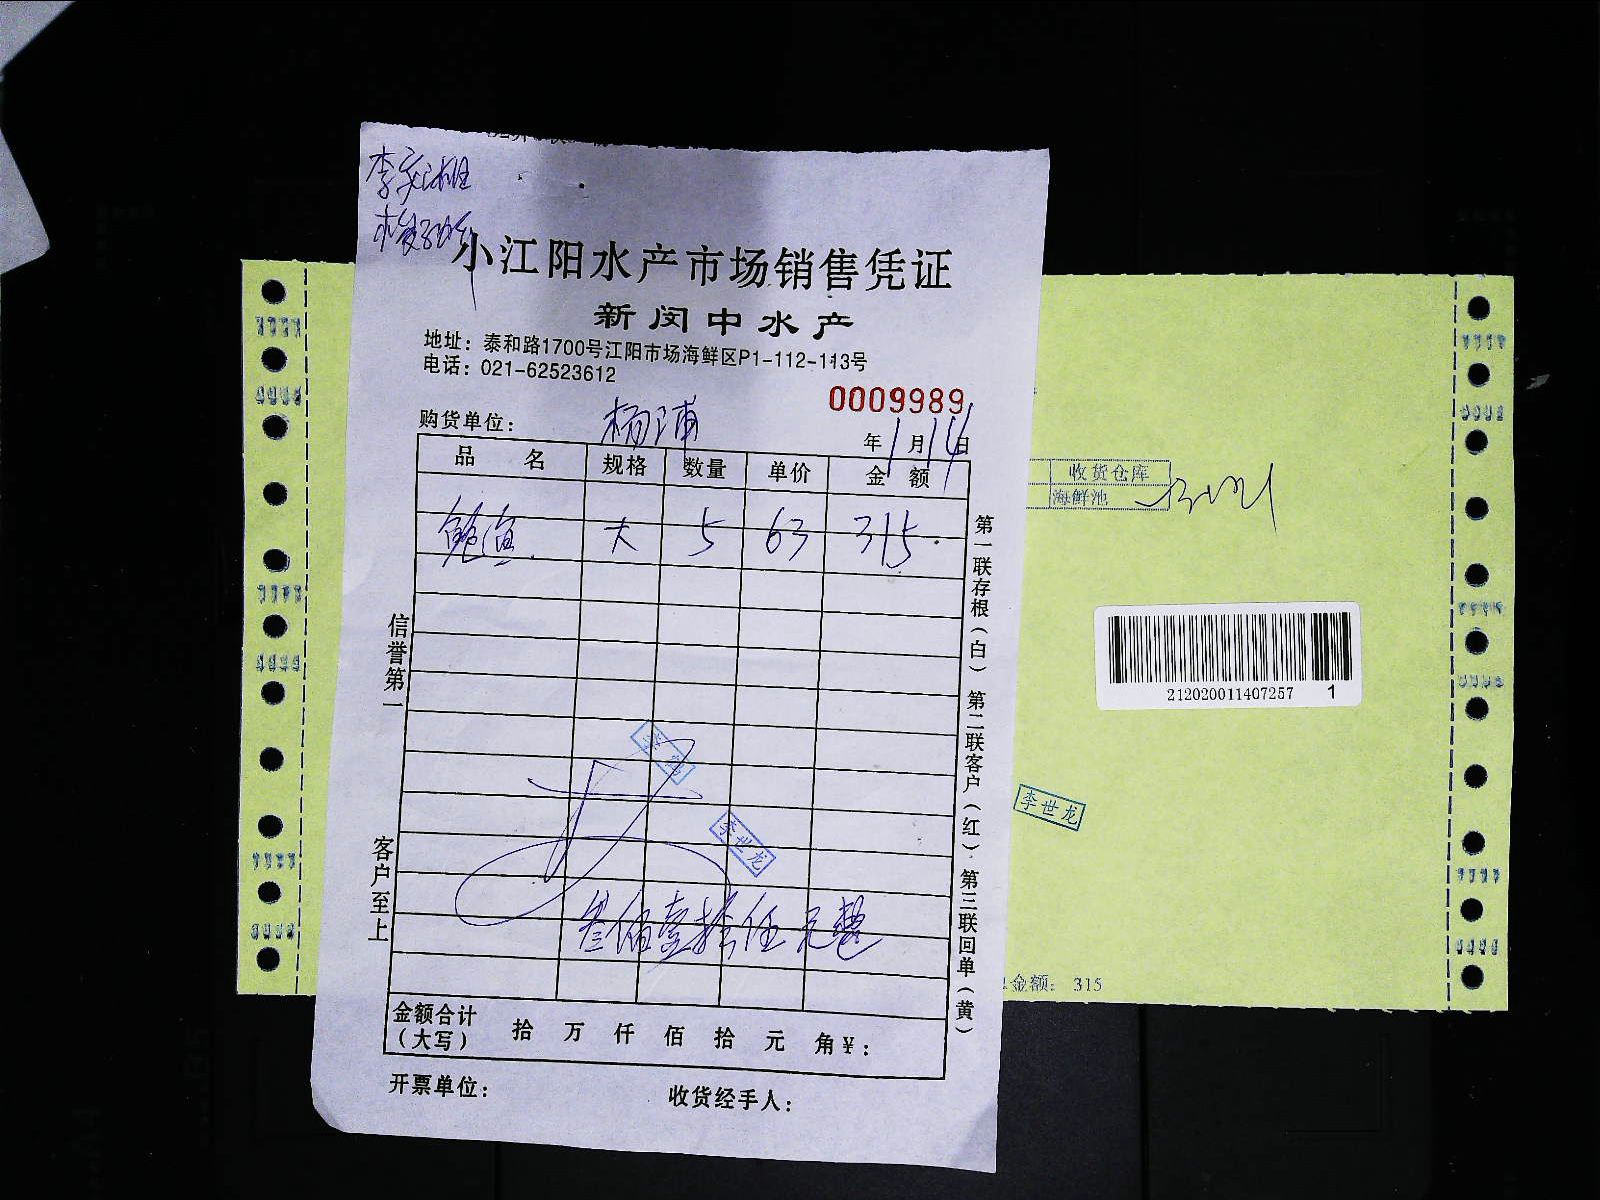 小江阳水产市场销售凭证
新闵中水产
地址：泰和路1700号江阳市场海鲜区P1-112-113号
电话：021-62523612
0009989
购货单位：杨浦
年1月14日
品名 规格 数量 单价 金额
鲍鱼 大 5 63 315
叁佰壹拾伍元整
金额合计（大写） 拾 万 仟 佰 拾 元 角¥：
开票单位： 收货经手人：
信誉第一
客户至上
第一联存根（白） 第二联客户（红） 第三联回单（黄）
李世龙
收货仓库
海鲜池
212020011407257 1
李世龙
金额： 315